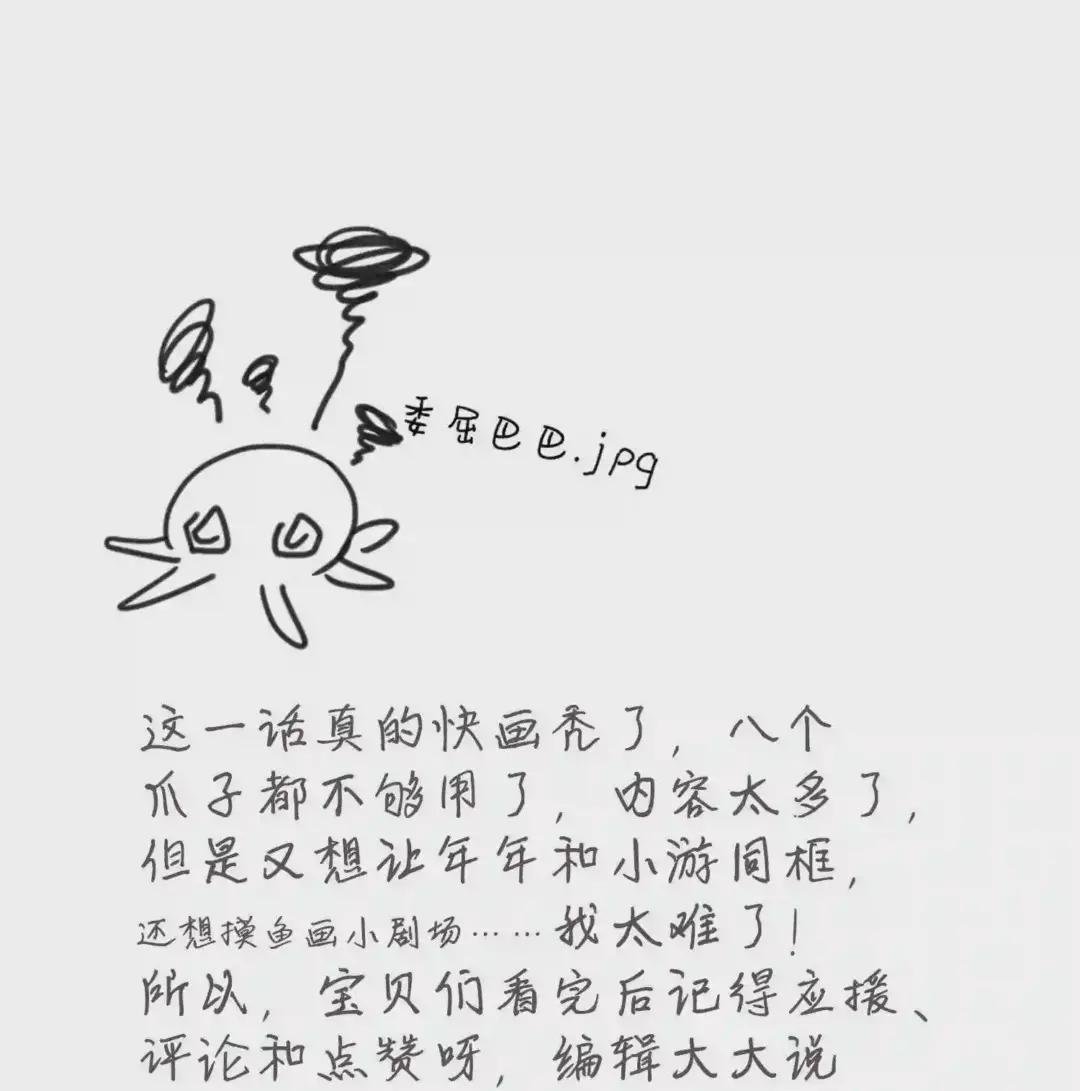 委屈巴巴.jpg
这一话真的快画秃了，八个
爪子都不够用了，内容太多了，
但是又想让年年和小游同框，
还想摸鱼画小剧场……我太难了！
所以，宝贝们看完后记得应援、
评论和点赞呀，编辑大大说